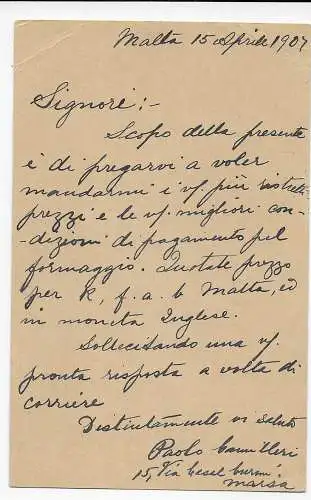 Malta 15 Aprile 1907
Signori:-
Scopo della presente
è di pregarvi a voler
mandarmi i v/ più ristretti
prezzi e le v/ migliori con-
-dizioni di pagamento pel
formaggio. Quotate prezzo
per K, f. a. b Malta, ed
in moneta Inglese.
Sollecitando una v/
pronta risposta a volta di
corriere
Distintamente vi saluto
Paolo Camilleri
15, Via
Marsa